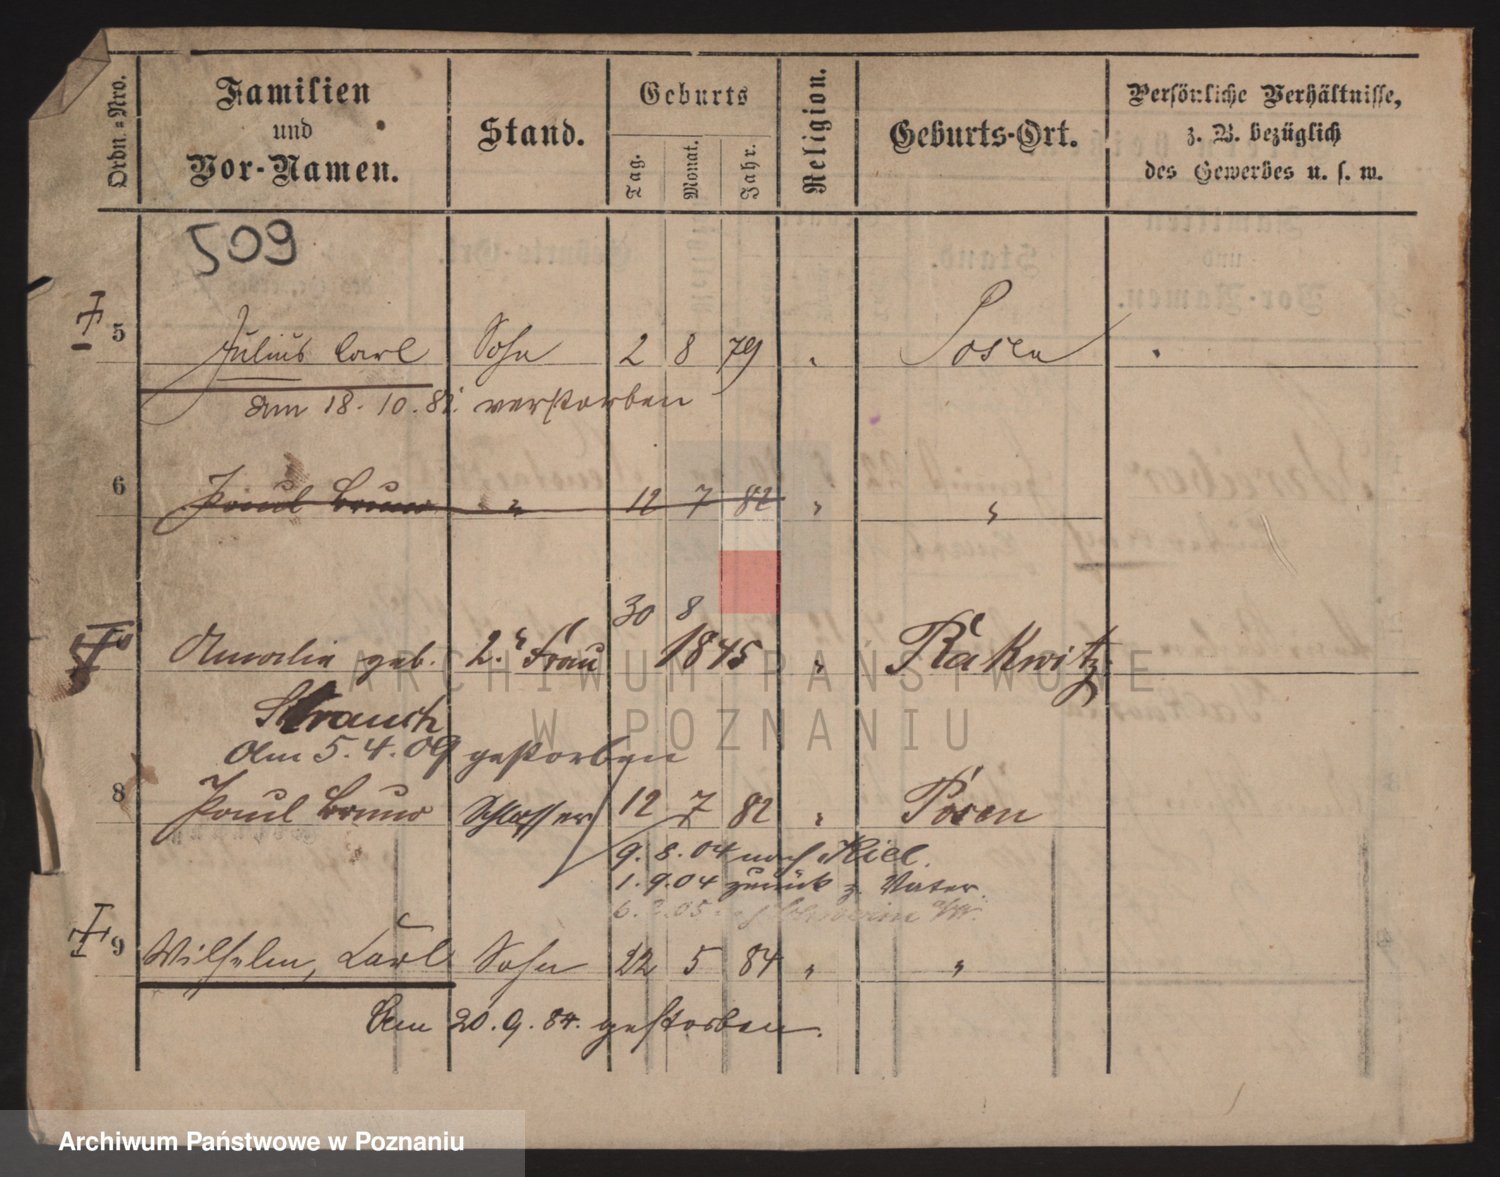 Ordn.-Nro.
Familien
und
Vor-Namen.
Stand.
Geburts
Tag.
Monat.
Jahr.
Religion.
Geburts-Ort.
Persönliche Verhältnisse,
z. B. bezüglich
des Gewerbes u. s. w.
509
5 Julius Carl Sohn 2 8 79 " Posen
am 18.10.82. verstorben
6 Paul Bruno " 12 7 82 " "
30 8
Amalie geb. 2.te Frau 1845 " Rakwitz
Strauch
Am 5.4.09 gestorben
8 Paul Bruno Schlosser 12 7 82 " Posen
9.8.04 nach Kiel.
1.9.04 zurück z. Vater.
6.2.05 Schwerin a/W.
9 Wilhelm, Carl Sohn 22 5 84 " "
Am 20.9.84. gestorben.
ARCHIWUM PAŃSTWOWE
W POZNANIU
Archiwum Państwowe w Poznaniu